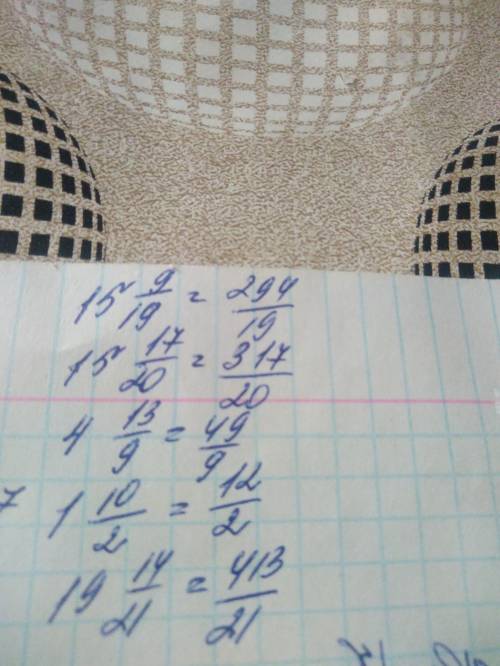 15 9/19 = 294/19
15 17/20 = 317/20
4 13/9 = 49/9
7 1 10/2 = 12/2
19 14/21 = 413/21